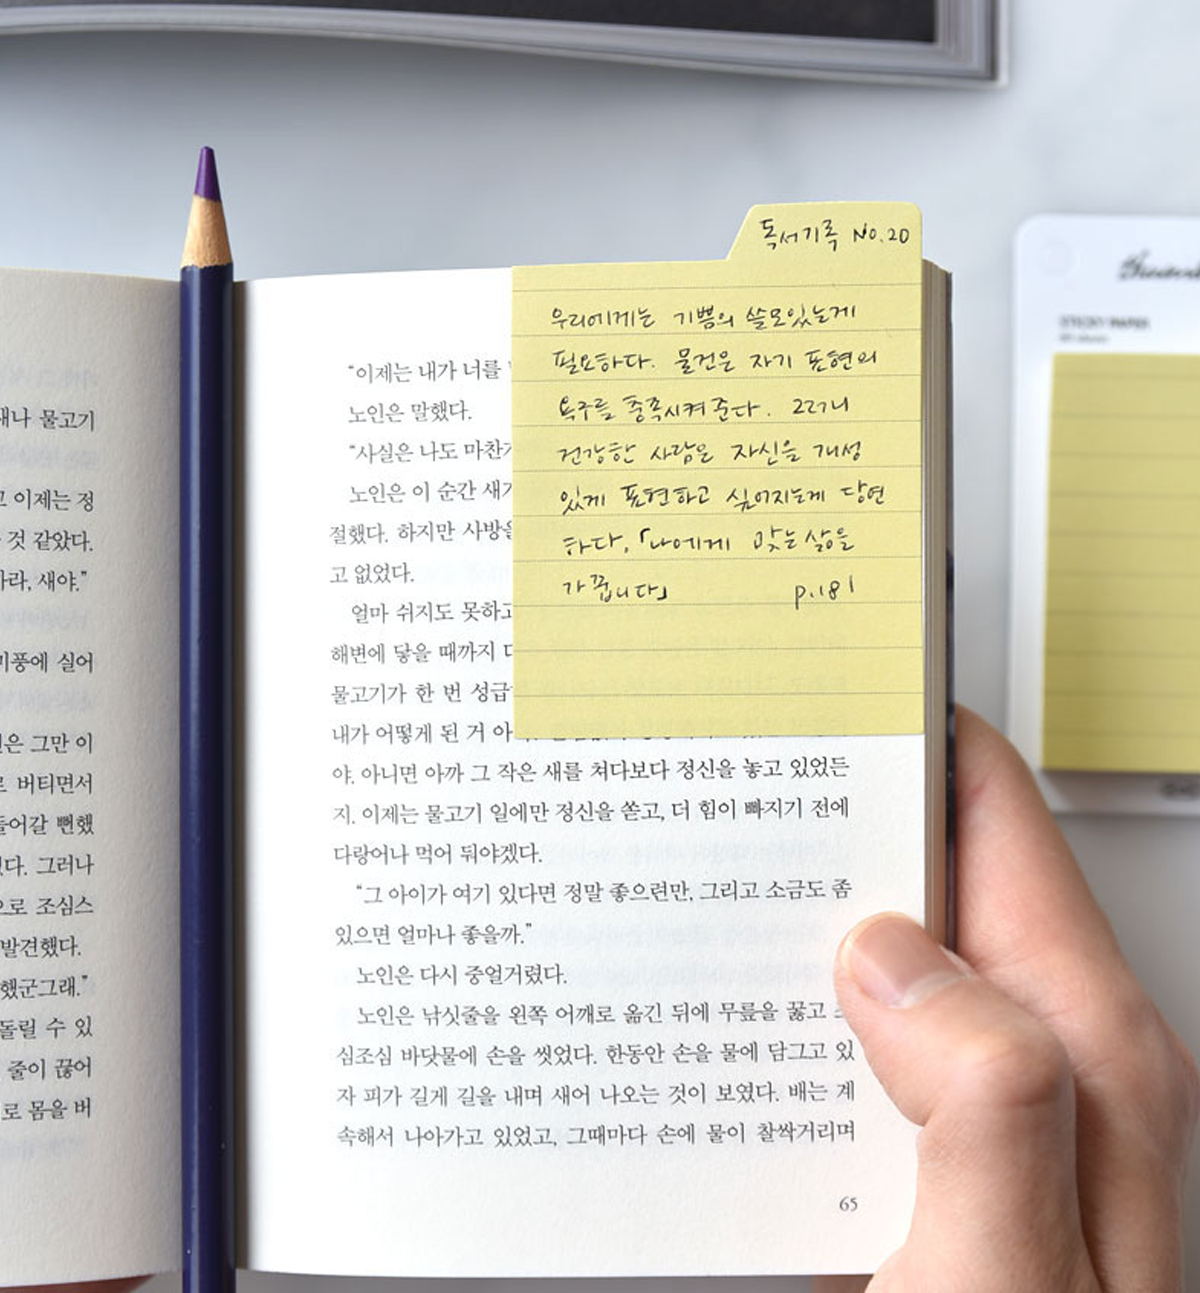 독서기록 No.20
우리에게는 기쁨의 쓸모있는게
필요하다. 물건은 자기 표현의
욕구를 충족시켜 준다. 그러니
건강한 사람은 자신을 개성
있게 표현하고 싶어지는게 당연
하다.「나에게 맞는 삶을
가꿉니다」 p.181
STICKY PAPER
새나 물고기
이제는 정
것 같았다.
새야.”
미풍에 실어
그만 이
버티면서
들어갈 뻔했
그러나
조심스
발견했다.
했군그래.”
돌릴 수 있
줄이 끊어
로 몸을 버
“이제는 내가 너를
노인은 말했다.
“사실은 나도 마찬가
노인은 이 순간 새가
절했다. 하지만 사방을
고 없었다.
얼마 쉬지도 못하고
해변에 닿을 때까지
물고기가 한 번 성급
내가 어떻게 된 거 아
야. 아니면 아까 그 작은 새를 쳐다보다 정신을 놓고 있었든
지. 이제는 물고기 일에만 정신을 쏟고, 더 힘이 빠지기 전에
다랑어나 먹어 둬야겠다.
“그 아이가 여기 있다면 정말 좋으련만, 그리고 소금도 좀
있으면 얼마나 좋을까.”
노인은 다시 중얼거렸다.
노인은 낚싯줄을 왼쪽 어깨로 옮긴 뒤에 무릎을 꿇고
심조심 바닷물에 손을 씻었다. 한동안 손을 물에 담그고 있
자 피가 길게 길을 내며 새어 나오는 것이 보였다. 배는 계
속해서 나아가고 있었고, 그때마다 손에 물이 찰싹거리며
65